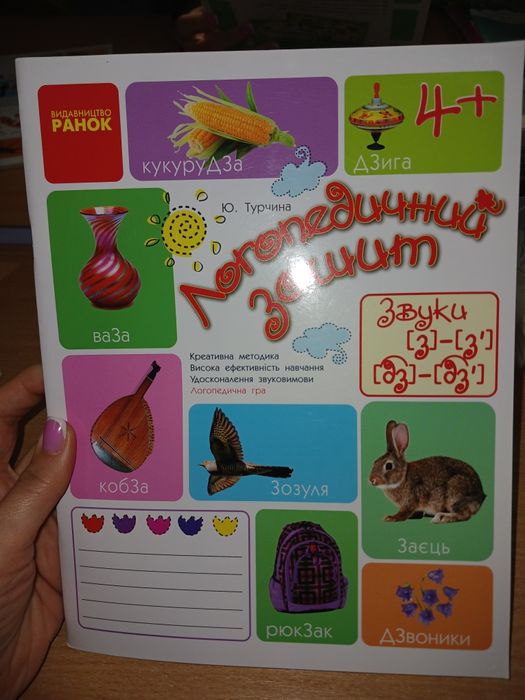 ВИДАВНИЦТВО
РАНОК
кукуруДЗа
ДЗига
4+
Ю. Турчина
Логопедичний
зошит
ваЗа
Креативна методика
Висока ефективність навчання
Удосконалення звуковимови
Логопедична гра
Звуки
[з]–[з']
[дз]–[дз']
кобЗа
Зозуля
Заєць
рюкЗак
ДЗвоники